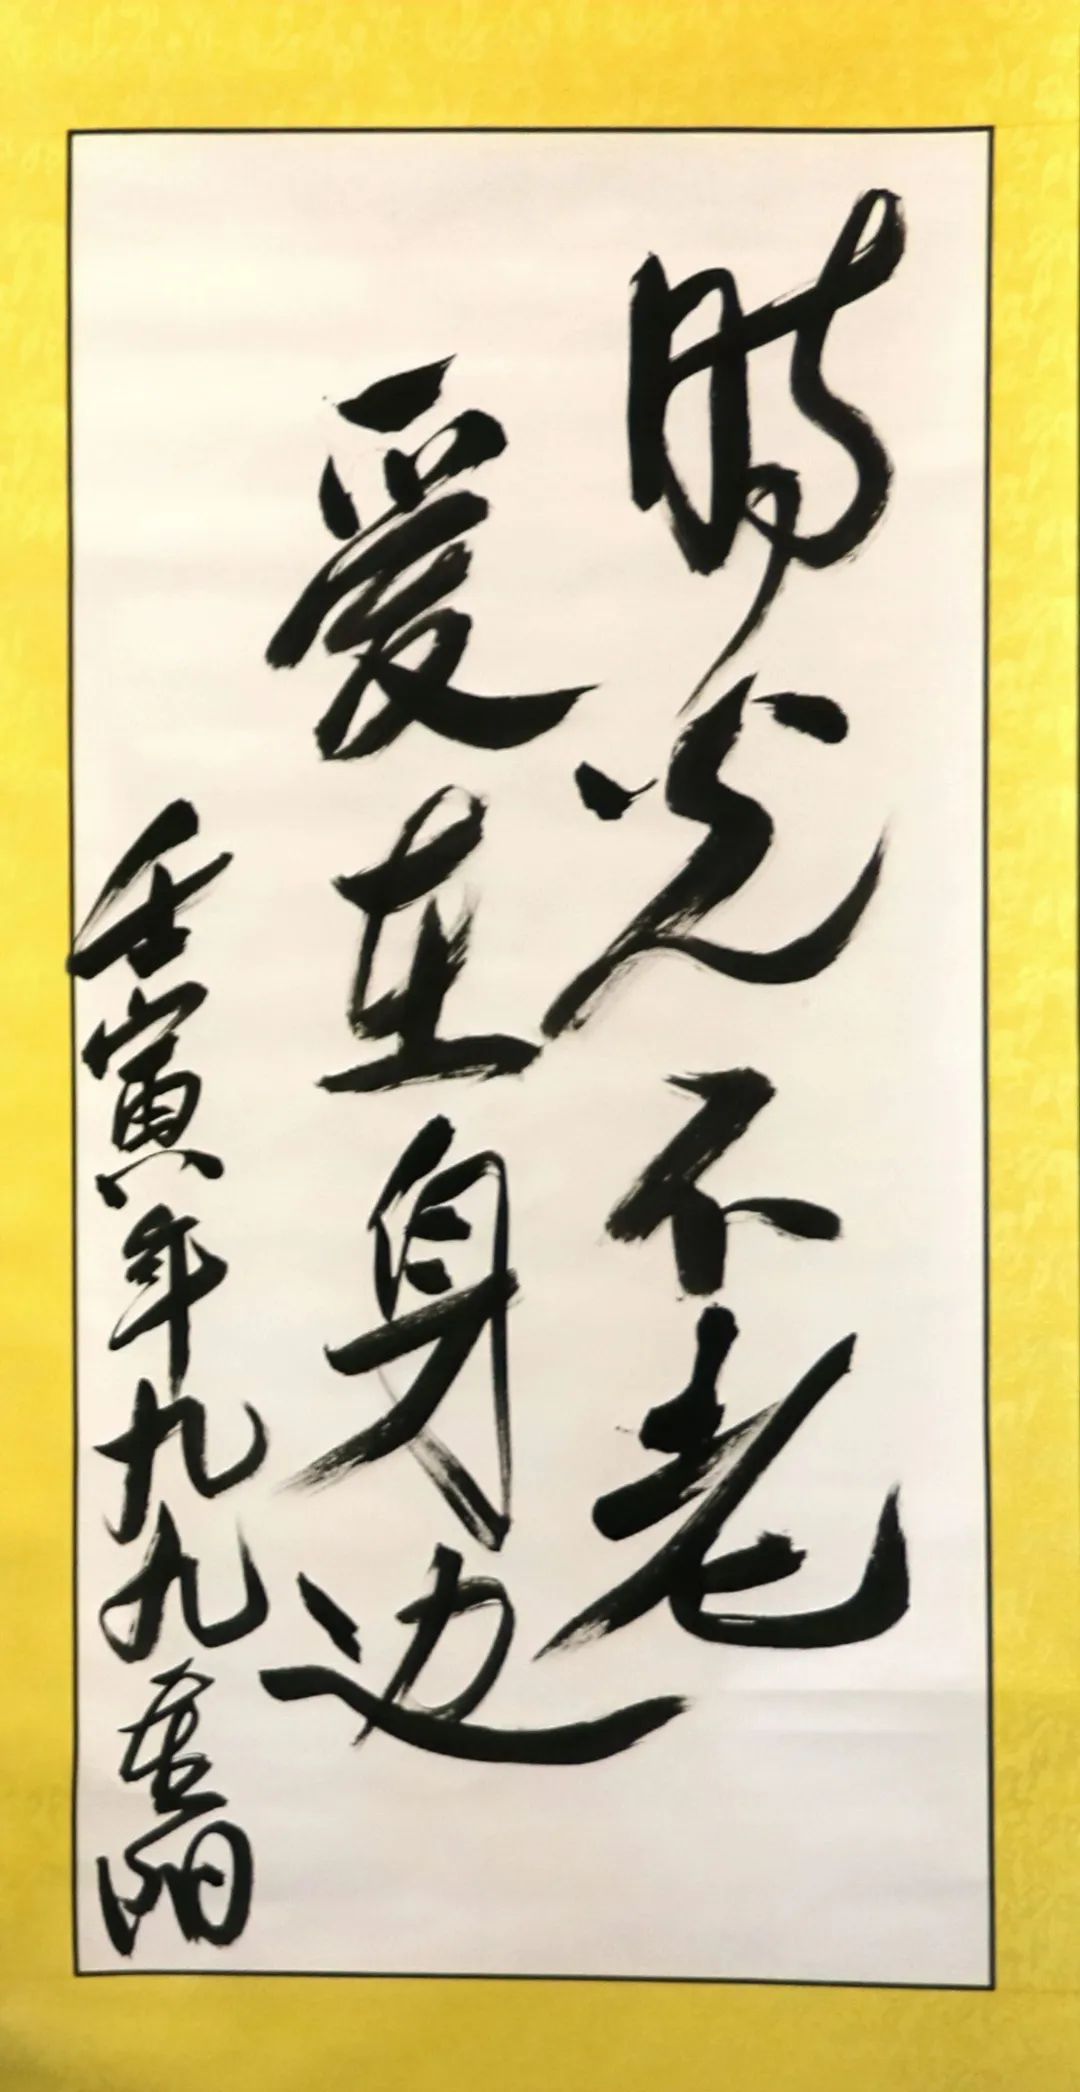 时光不老
爱在身边
壬寅年九九重阳